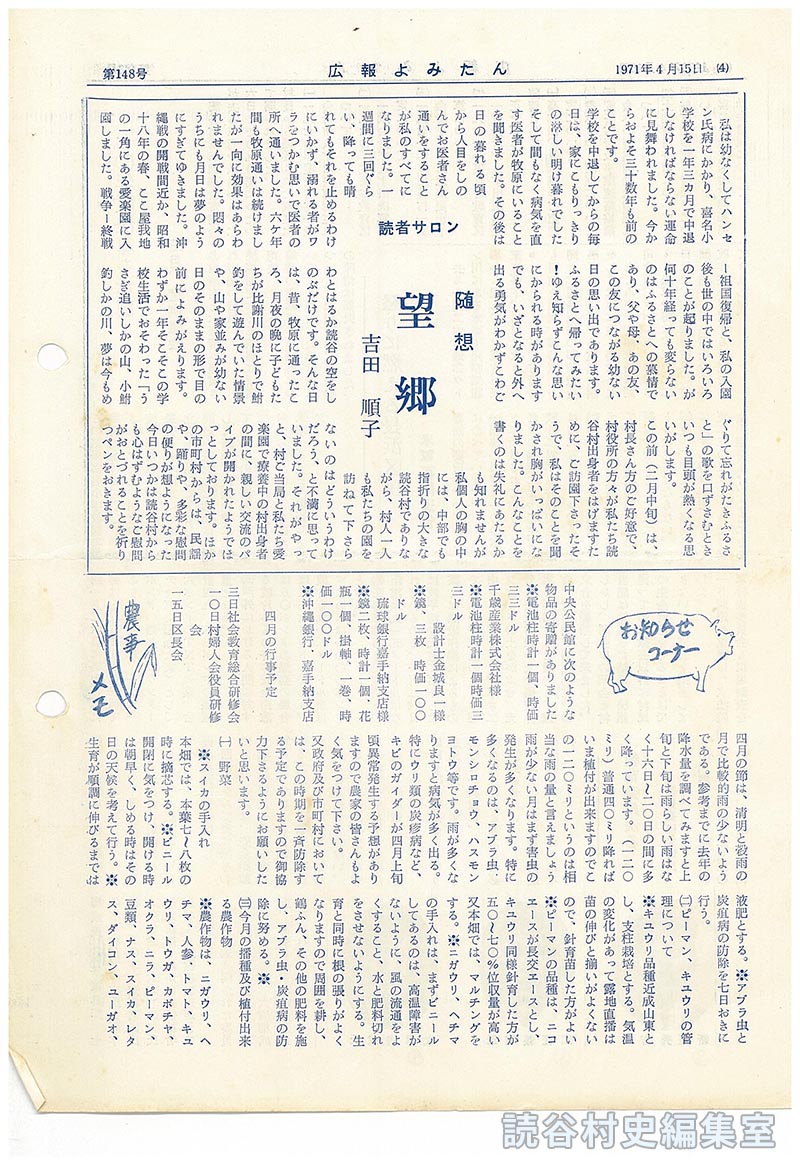 第148号
広報よみたん
1971年4月15日 (4)
私は幼なくしてハンセ
ン氏病にかかり、喜名小
学校を一年三ヵ月で中退
しなければならない運命
に見舞われました。今か
らおよそ三十数年も前の
ことです。
学校を中退してからの毎
日は、家にこもりっきり
の淋しい明け暮れでした
そして間もなく病気を直
す医者が牧原にいること
を聞きました。その後は
日の暮れる頃
から人目をしの
んでお医者さん
通いをすること
が私のすべてに
なりました。一
週間に三回ぐら
い、降っても晴
れてもそれを止めるわけ
にいかず、溺れる者がワ
ラをつかむ思いで医者の
所へ通いました。六ケ年
間も牧原通いは続けまし
たが一向に効果はあらわ
れませんでした。悶々の
うちにも月日は夢のよう
にすぎてゆきました。沖
縄戦の開戦間近か、昭和
十八年の春、ここ屋我地
の一角にある愛楽園に入
園しました。戦争ー終戦
読者サロン
随想
望郷
吉田 順子
ー祖国復帰と、私の入園
後も世の中ではいろいろ
のことが起りました。が
何十年経っても変らない
のはふるさとへの慕情で
あり、父や母、あの友、
この友につながる幼ない
日の思い出であります。
ふるさとへ帰ってみたい
!ゆえ知らずこんな思い
にかられる時があります
でも、いざとなると外へ
出る勇気がわかずこわご
わとはるか読谷の空をし
のぶだけです。そんな日
は、昔、牧原に通ったこ
ろ、月夜の晩に子どもた
ちが比謝川のほとりで鮒
釣をして遊んでいた情景
や、山や家並みが幼ない
日のそのままの形で目の
前によみがえります。
わずか一年そこその学
校生活でおそわった「う
さぎ追いしかの山、小鮒
釣しかの川、夢は今もめ
ぐりて忘れがたきふるさ
と」の歌を口ずさむとき
いつも目頭が熱くなる思
いがします。
この前(二月中旬)は、
村長さん方のご好意で、
村役所の方々が私たち読
谷村出身者をはげますた
めに、ご訪園下さったそ
うで、私はそのことを聞
かされ胸がいっぱいにな
りました。こんなことを
書くのは失礼にあたるか
も知れませんが
私個人の胸の中
には、中部でも
指折りの大きな
読谷村でありな
がら、村人一人
も私たちの園を
訪ねて下さら
ないのはどういうわけ
だろう、と不満に思って
いました。それがやっ
と、村ご当局と私たち愛
楽園で療養中の村出身者
の間に、親しい交流のパ
イプが開かれたようでほ
っとしております。ほか
の市町村からは、民謡
や、踊りや、多彩な慰問
の便りが想ようになった
今日いつかは読谷村から
も心はずむようなご慰問
がおとづれることを祈り
つペンをおきます。
お知らせ
コーナー
中央公民館に次のような
物品の寄贈がありました
※電池柱時計一個、時価
三三ドル
千歳産業株式会社様
※電池柱時計一個時価三
三ドル
設計士金城良一様
※鏡、三枚、時価一〇〇
ドル
琉球銀行嘉手納支店様
※鏡二枚、時計一個、花
瓶一個、掛軸、一巻、時
価一〇〇ドル
※沖縄銀行、嘉手納支店
四月の行事予定
三日社会教育総合研修会
一〇日村婦人会役員研修
会
一五日区長会
農事
メモ
四月の節は、清明と穀雨の
月で比較的雨の少ないよう
である。参考までに去年の
降水量を調べてみますと上
旬と下旬は雨らしい雨はな
く十六日~二〇日の間に多
く降っています。(一二〇
ミリ)普通四〇ミリ降れば
いま植付が出来ますのでこ
の一二〇ミリというのは相
当な雨の量と言えましょう
雨が少ない月はまず害虫の
発生が多くなります。特に
多くなるのは、アブラ虫、
モンシロチョウ、ハスモン
ヨトウ等です。雨が多くな
りますと病気が多く出る。
特にウリ類の炭疹病など、
キビのガイダーが四月上旬
頃異常発生する予想があり
ますので農家の皆さんもよ
く気をつけて下さい。
又政府及び市町村において
は、この時期を一斉防除す
る予定でありますので御協
力下さるようにお願いした
いと思います。
㈠ 野菜
※スイカの手入れ
本畑では、本葉七~八枚の
時に摘芯する。※ビニール
開閉に気をつけ、開ける時
は朝早く、しめる時はその
日の天候を考えて行う。※
生育が順調に伸びるまでは
液肥とする。※アブラ虫と
炭疽病の防除を七日おきに
行う。
㈡ピーマン、キュウリの管
理について
※キュウリ品種近成山東と
し、支柱栽培とする。気温
の変化があって露地直播は
苗の伸びと揃いがよくない
ので、針育苗した方がよい
※ピーマンの品種は、ニコ
エースが長交エースとし、
キュウリ同様針育した方が
五〇~七〇%位収量が高い
又本畑では、マルチングを
する。※ニガウリ、ヘチマ
の手入れは、まずビニール
してあるのは、高温障害が
ないように、風の流通をよ
くすること、水と肥料切れ
をさせないようにする。生
育と同時に根の張りがよく
なりますので周囲を耕し、
鶏ふん、その他の肥料を施
し、アブラ虫・炭疽病の防
除に努める。※
㈢今月の播種及び植付出来
る農作物
※農作物は、ニガウリ、ヘ
チマ、人参、トマト、キュ
ウリ、トウガ、カボチャ、
オクラ、ニラ、ピーマン、
豆類、ナス、スイカ、レタ
ス、ダイコン、ユーガオ、
読谷村史編集室